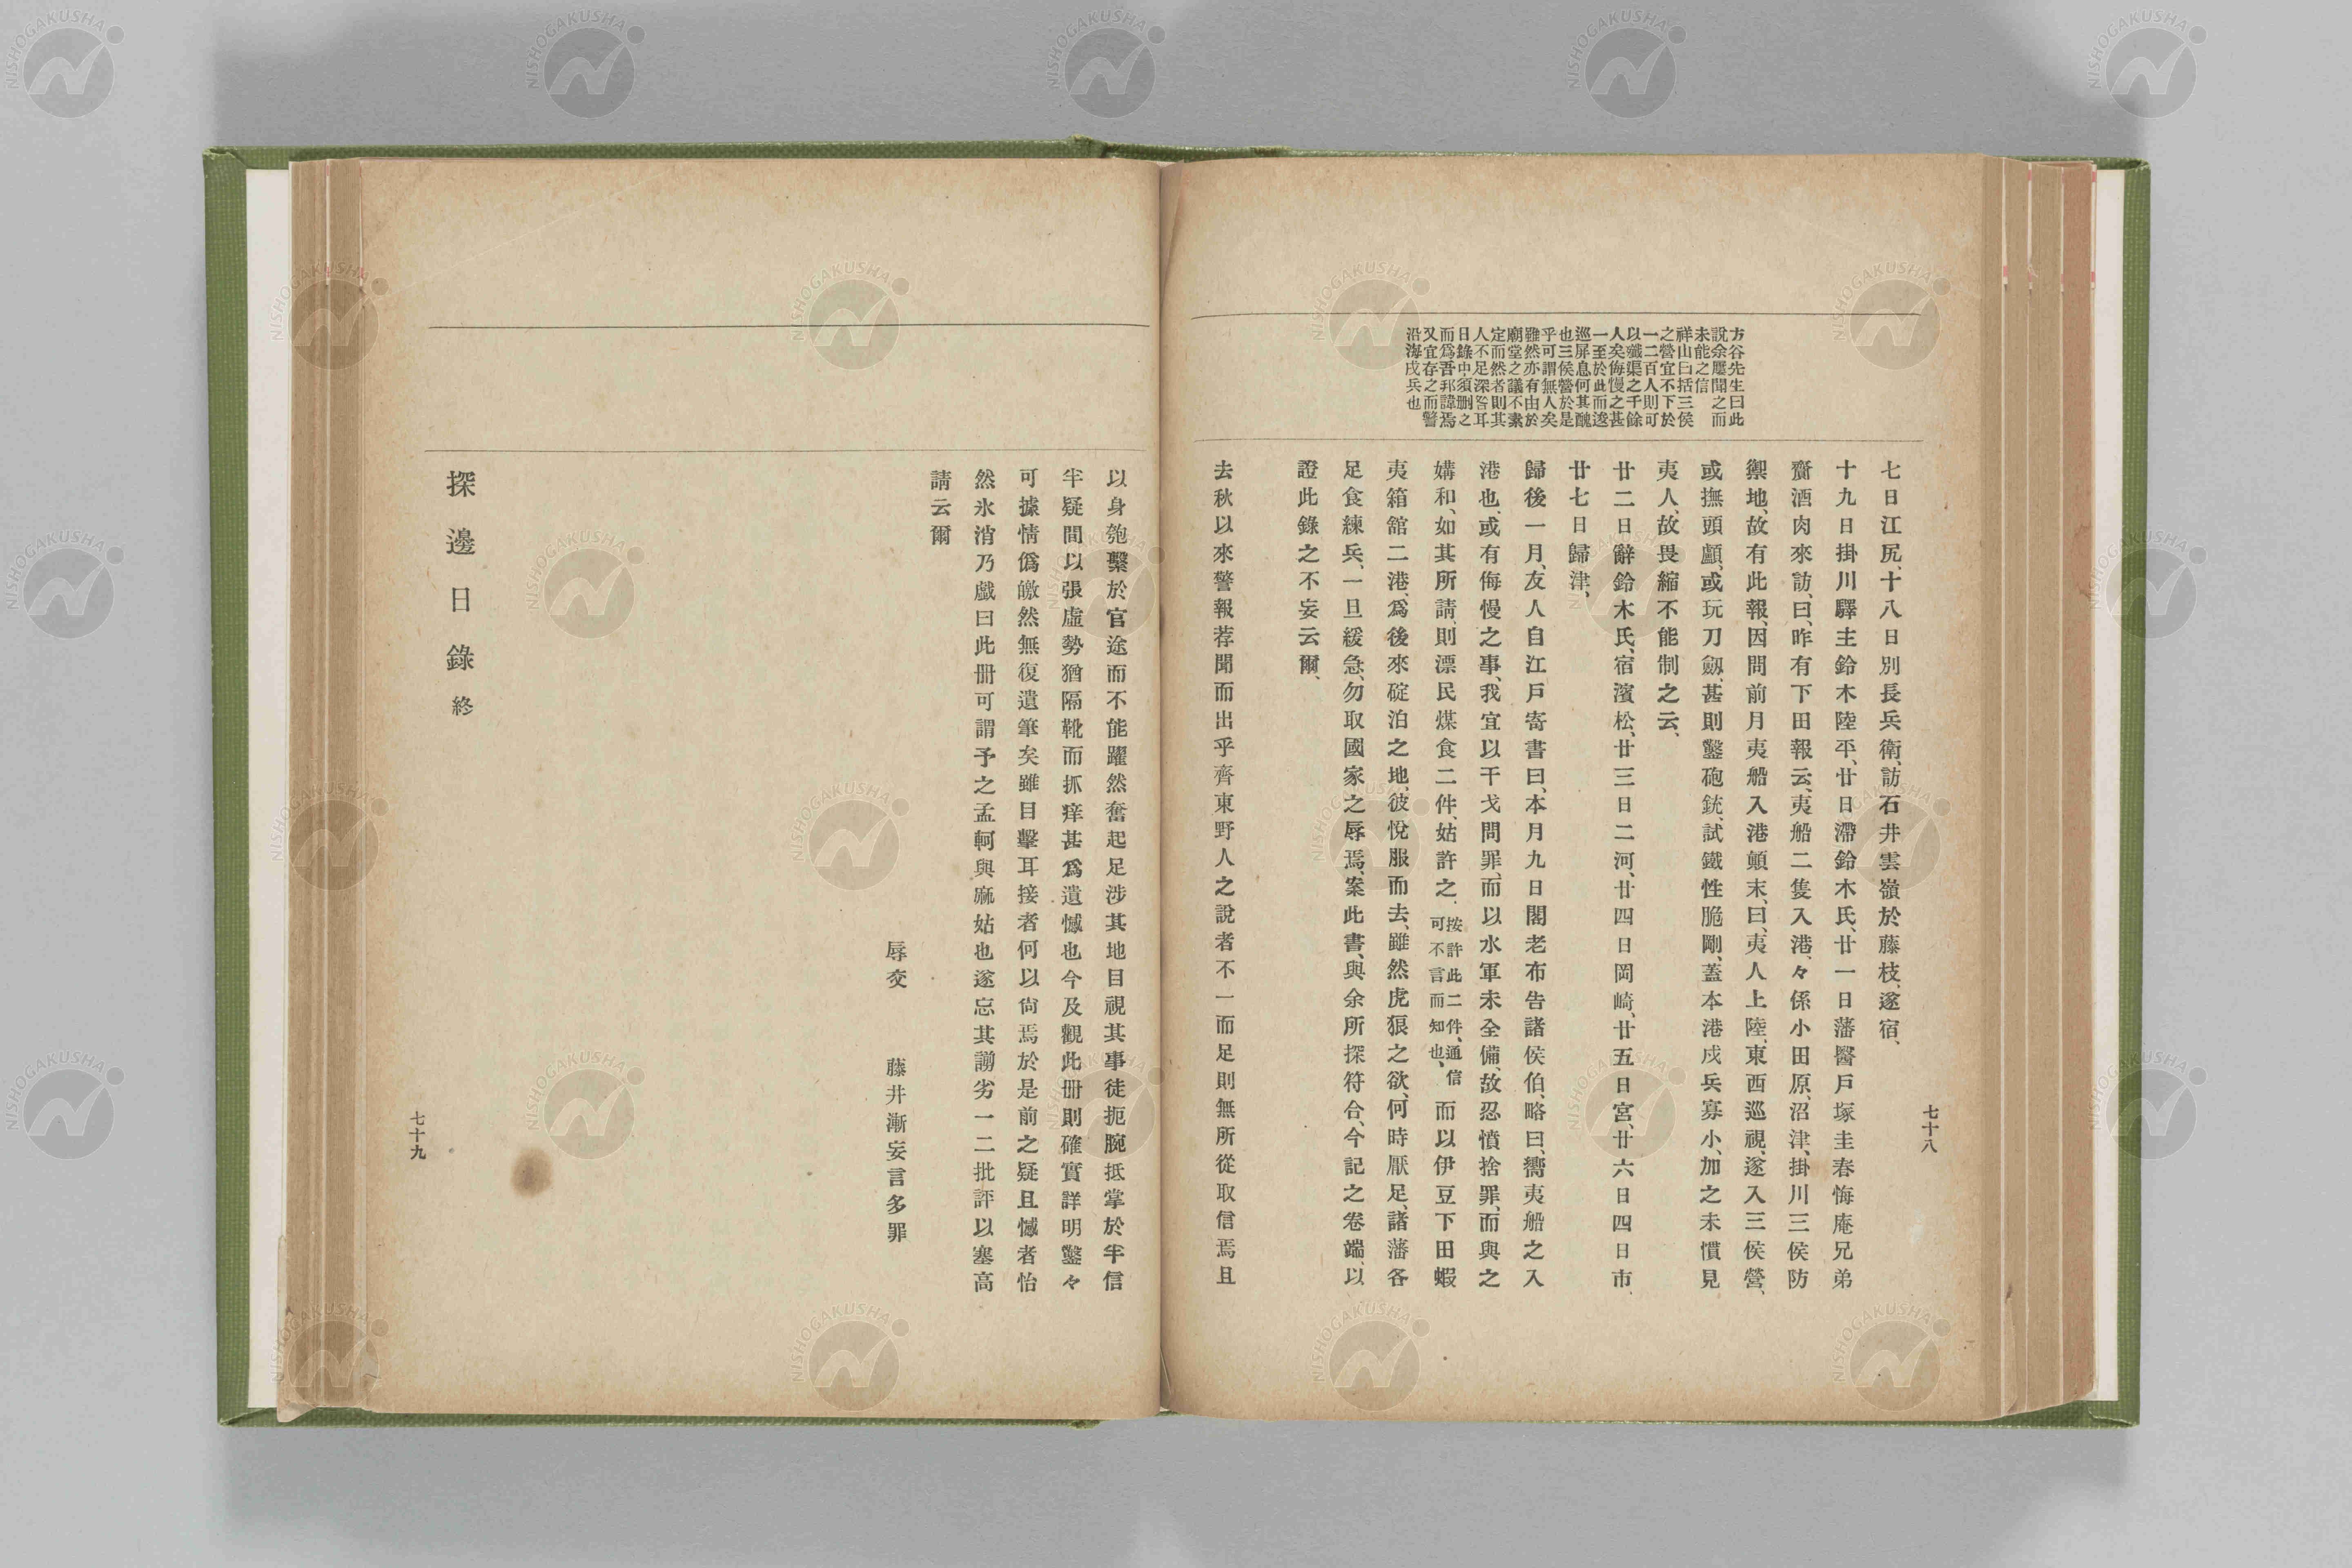 七十八
方谷先生曰此
說余屢聞之而
未能之信
祥山曰括三侯
之營宜不下於
一二百人則可
以殲渠之千餘
人矣侮慢之甚
一至於此而逡
巡屏息何其醜
也三侯營於是
乎可謂無人矣
雖然亦有由於
廟堂之議不素
定而然者則其
人不足深咎耳
日錄中須刪之
而爲吾邦諱焉
又宜存之而警
沿海戌兵也
七日江尻、十八日別長兵衛、訪石井雲嶺於藤枝、遂宿、
十九日掛川驛主鈴木陸平、廿日滯鈴木氏、廿一日藩醫戶塚圭春悔庵兄弟
齎酒肉來訪、曰、昨有下田報云、夷船二隻入港、々係小田原、沼津、掛川三侯防
禦地、故有此報、因問前月夷船入港顛末、曰、夷人上陸、東西巡視、遂入三侯營、
或撫頭顱、或玩刀劔、甚則鑿砲銃、試鐵性脆剛、蓋本港戌兵寡小、加之未慣見
夷人、故畏縮不能制之云、
廿二日辭鈴木氏、宿濱松、廿三日二河、廿四日岡崎、廿五日宮、廿六日四日市、
廿七日歸津、
歸後一月、友人自江戶寄書曰、本月九日閣老布告諸侯伯、略曰、嚮夷船之入
港也、或有侮慢之事、我宜以干戈問罪、而以水軍未全備、故忍憤捨罪、而與之
媾和、如其所請、則漂民煤食二件、姑許之、按許此二件、通信可不言而知也、而以伊豆下田蝦
夷箱舘二港、爲後來碇泊之地、彼悅服而去、雖然虎狼之欲、何時厭足、諸藩各
足食練兵、一旦緩急、勿取國家之辱焉、案此書、與余所探符合、今記之卷端、以
證此錄之不妄云爾、
去秋以來警報荐聞而出乎齊東野人之說者不一而足則無所從取信焉且
以身匏繫於官途而不能躍然奮起足涉其地目視其事徒扼腕抵掌於半信
半疑間以張虛勢猶隔靴而抓痒甚爲遺憾也今及觀此册則確實詳明鑿々
可據情僞皦然無復遺筆矣雖目擊耳接者何以尙焉於是前之疑且憾者怡
然氷消乃戲曰此册可謂予之孟軻與麻姑也遂忘其謭劣一二批評以塞高
請云爾
辱交　藤井漸妄言多罪
探邊日錄終
七十九